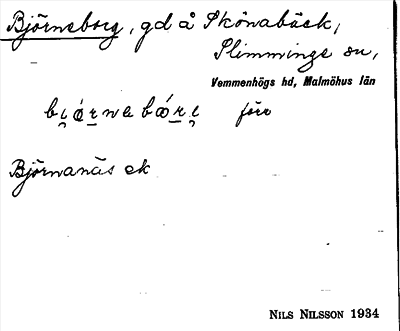 Björneborg, gd å Skönabäck,
Slimminge sn,
Vemmenhögs hd, Malmöhus län
förr
Björnanäs ek
NILS NILSSON 1934